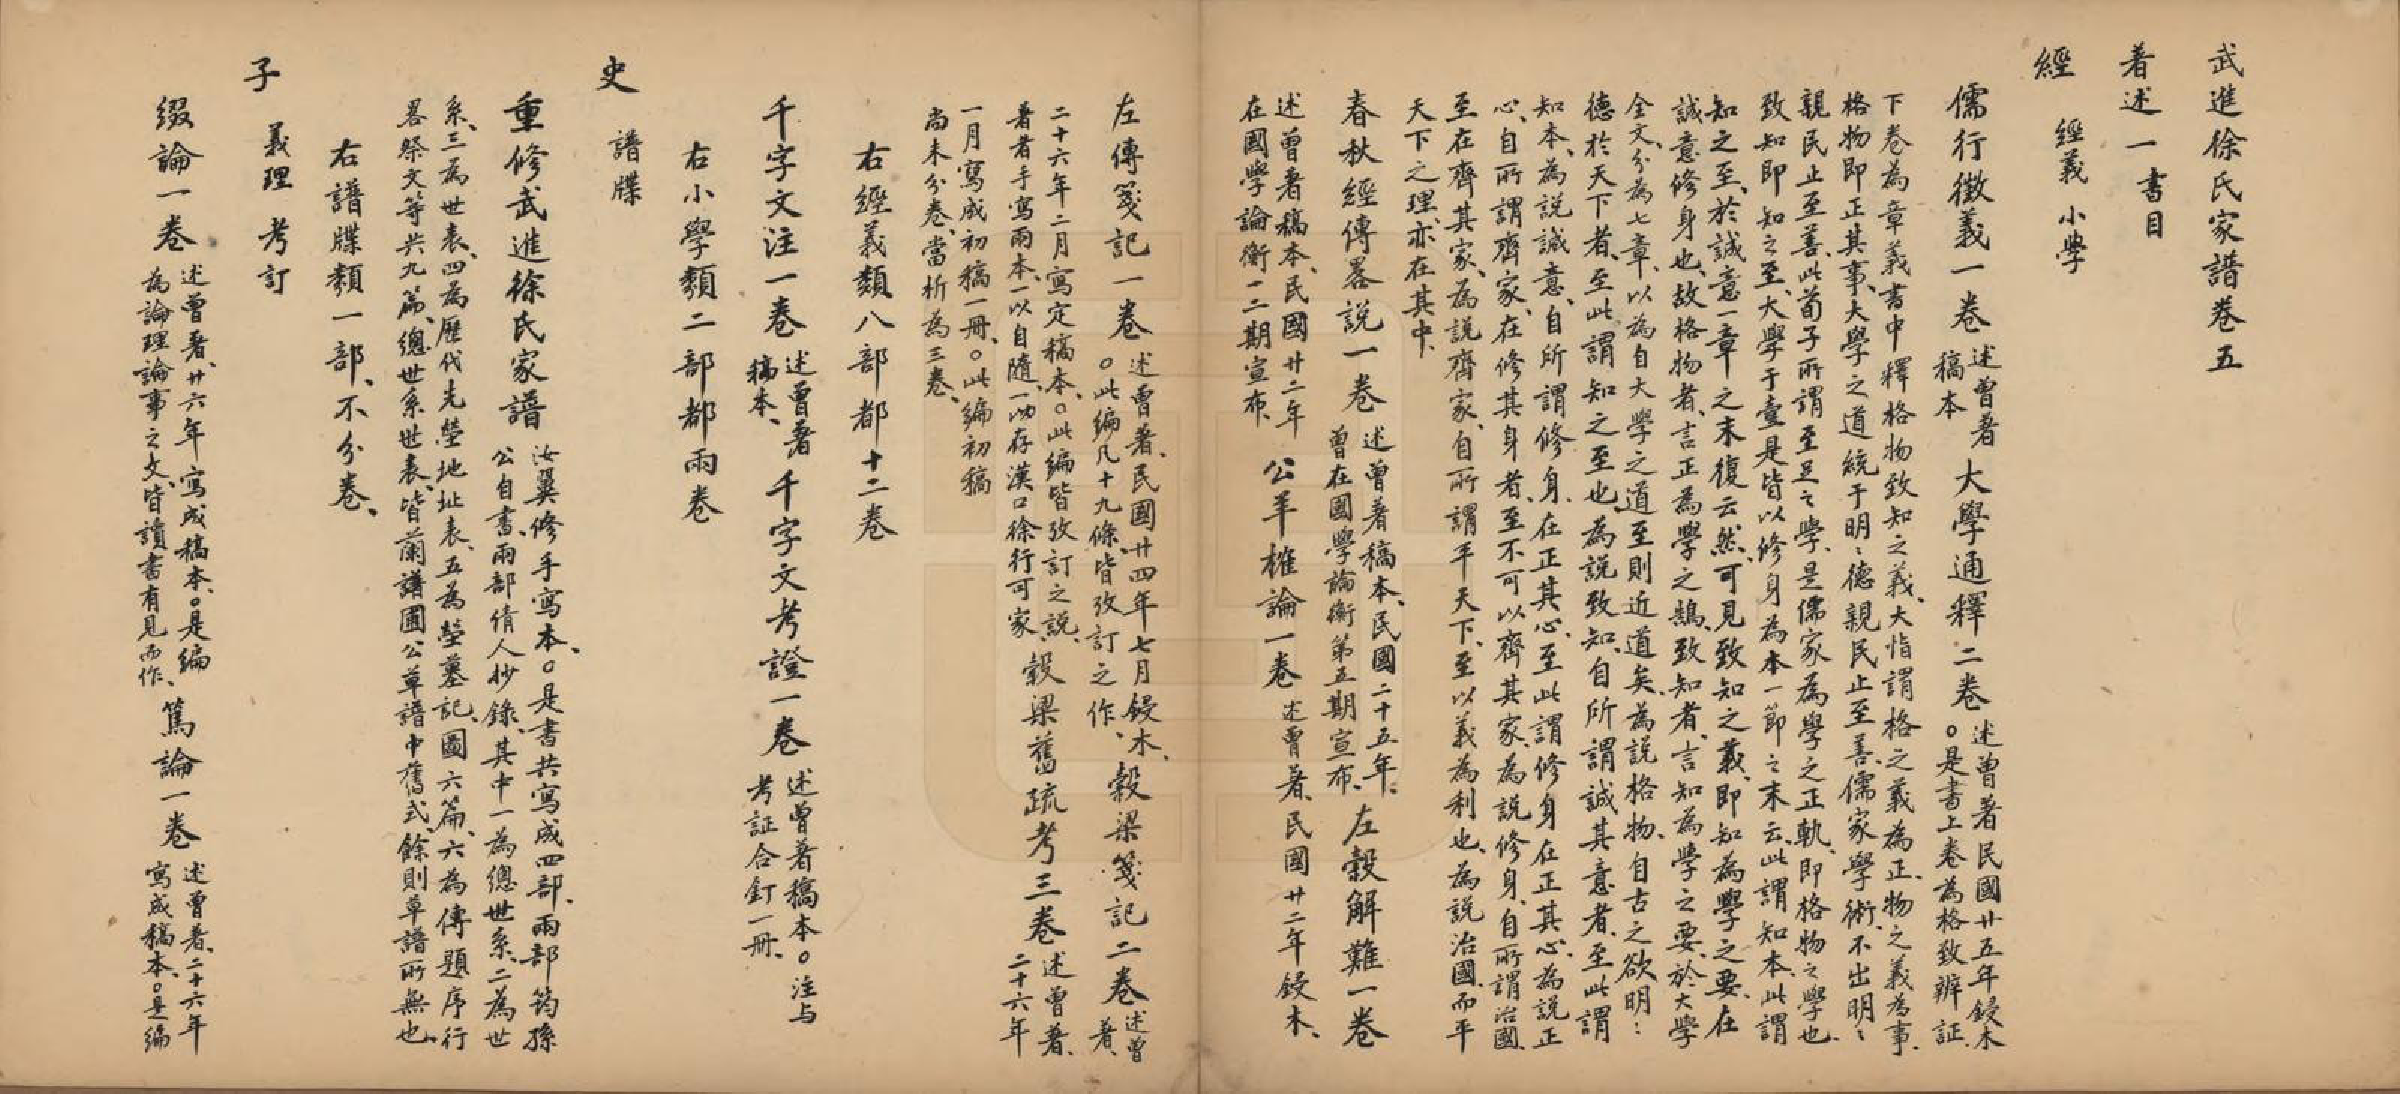 武進徐氏家譜卷五
著述一 書目
經 經義 小學
儒行徵義一卷 述曾著稿本 大學通釋二卷 述曾著民國廿五年鋟木○是書上卷為格致辨証、
下卷為章義書中釋格物致知之義、大恉謂格之義為正、物之義為事、
格物即正其事、大學之道統于明〻德親民止至善、儒家學術、不出明〻
親民止至善、此荀子所謂至足之學、是儒家為學之正軌、即格物之學也、
致知即知之至、大學于壹是皆以修身為本一節之末云、此謂知本、此謂
知之至、於誠意一章之末復云然、可見致知之義、即知為學之要、在
誠意修身也、故格物者、言正為學之鵠、致知者、言知為學之要、於大學
全文、分為七章、以為自大學之道至則近道矣、為說格物、自古之欲明〻
德於天下者、至此謂知之至也、為說致知、自所謂誠其意者、至此謂
知本、為說誠意、自所謂修身、在正其心、至此謂修身在正其心、為說正
心、自所謂齊家、在修其身者、至不可以齊其家、為說修身、自所謂治國、
至在齊其家、為說齊家、自所謂平天下、至以義為利也、為說治國、而平
天下之理、亦在其中、
春秋經傳畧說一卷 述曾著稿本、民國二十五年、曾在國學論衡第五期宣布、 左穀解難一卷
述曾著稿本、民國廿二年在國學論衡一二期宣布、 公羊榷論一卷 述曾著、民國廿二年鋟木、
左傳箋記一卷 述曾著、民國廿四年七月鋟木、○此編凡十九條、皆攷訂之作、 穀梁箋記二卷 述曾著、
二十六年二月寫定稿本、○此編皆攷訂之說、著者手寫兩本、一以自隨、一以存漢口徐行可家 穀梁舊疏考三卷 述曾著、二十六年
一月寫成初稿一冊、○此編初稿
尚未分卷、當析為三卷、
右經義類八部都十二卷
千字文注一卷 述曾著稿本、 千字文考證一卷 述曾著稿本○注与考証合釘一冊、
右小學類二部都兩卷
史 譜牒
重修武進徐氏家譜 汝翼修手寫本、○是書共寫成四部、兩部筠孫公自書、兩部倩人抄錄、其中一為總世系、二為世
系、三為世表、四為歷代先塋地址表、五為塋墓記、圖六篇、六為傳題序行
畧祭文等共九篇、總世系世表、皆蘭譜圃公草譜中舊式、餘則草譜所無也、
右譜牒類一部、不分卷、
子 義理 考訂
綴論一卷 述曾著、廿六年寫成稿本、○是編為論理論事之文、皆讀書有見而作、 篤論一卷 述曾著、二十六年寫成稿本、○是編